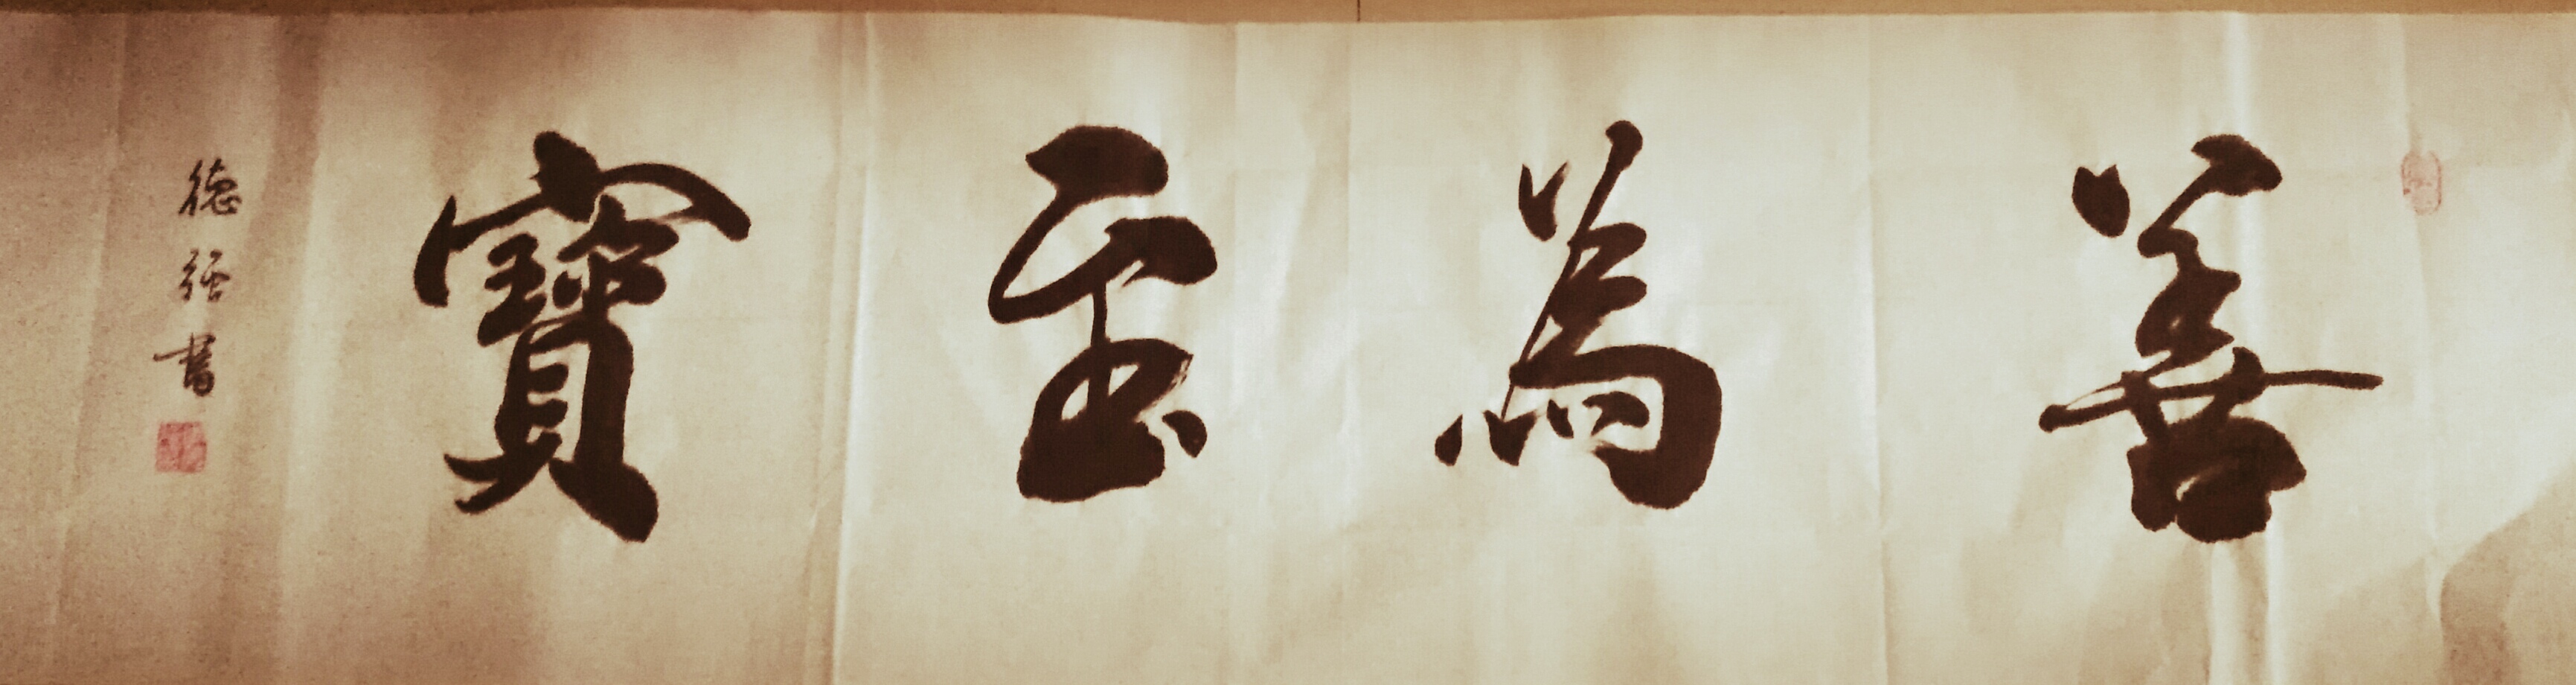 善為至寶
德強書